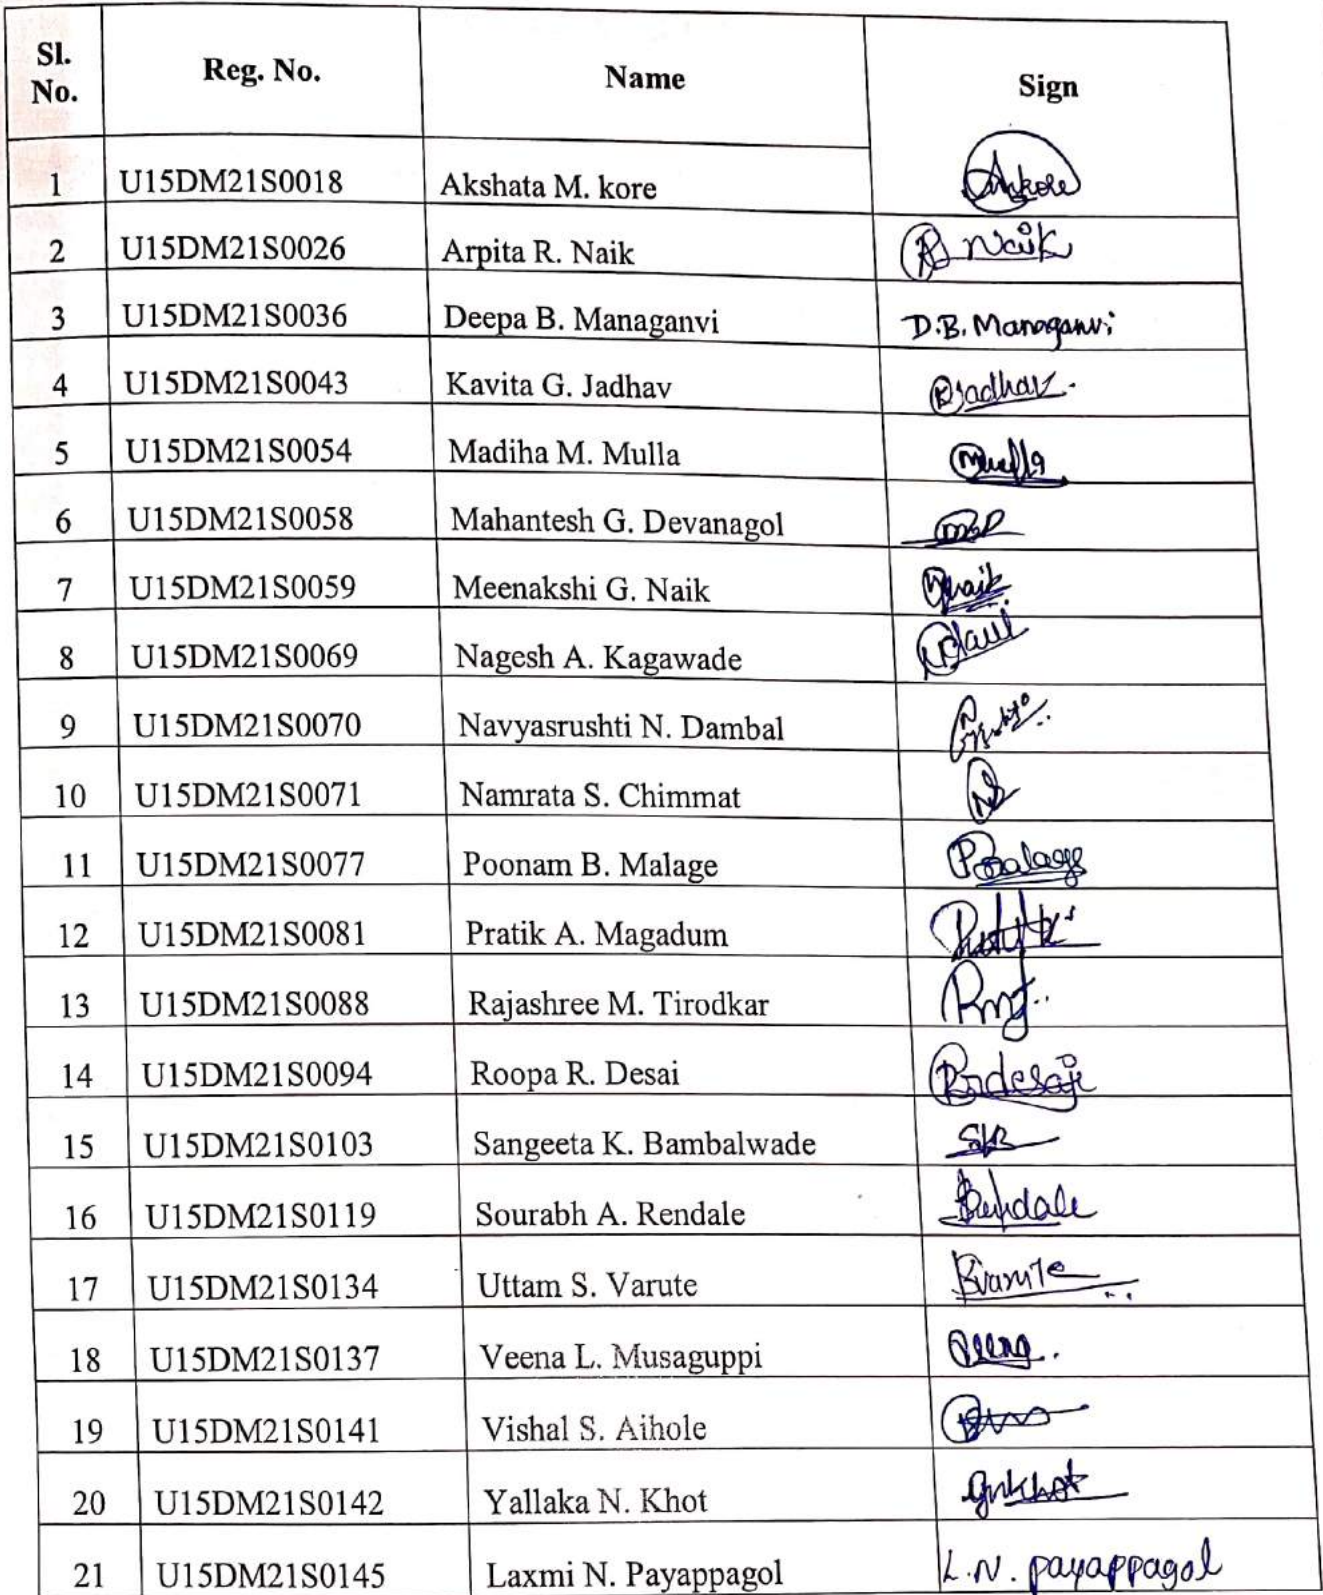 Sl. No. Reg. No. Name Sign
1 U15DM21S0018 Akshata M. kore Amkore
2 U15DM21S0026 Arpita R. Naik Naik
3 U15DM21S0036 Deepa B. Managanvi D.B. Managanvi
4 U15DM21S0043 Kavita G. Jadhav Jadhav
5 U15DM21S0054 Madiha M. Mulla Mulla
6 U15DM21S0058 Mahantesh G. Devanagol
7 U15DM21S0059 Meenakshi G. Naik Naik
8 U15DM21S0069 Nagesh A. Kagawade
9 U15DM21S0070 Navyasrushti N. Dambal
10 U15DM21S0071 Namrata S. Chimmat
11 U15DM21S0077 Poonam B. Malage
12 U15DM21S0081 Pratik A. Magadum
13 U15DM21S0088 Rajashree M. Tirodkar
14 U15DM21S0094 Roopa R. Desai Rrdesai
15 U15DM21S0103 Sangeeta K. Bambalwade SKB
16 U15DM21S0119 Sourabh A. Rendale Rendale
17 U15DM21S0134 Uttam S. Varute
18 U15DM21S0137 Veena L. Musaguppi Veena
19 U15DM21S0141 Vishal S. Aihole
20 U15DM21S0142 Yallaka N. Khot
21 U15DM21S0145 Laxmi N. Payappagol L.N. payappagol